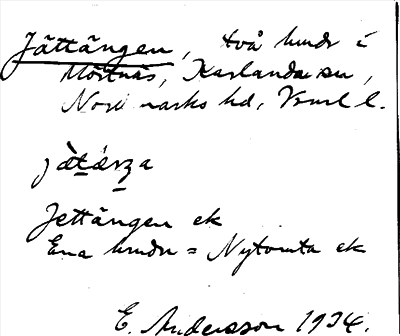 Jättängen, två lundr i
Mörtnäs, Karlanda sn,
Nordmarks hd, Vrml l.
Jettängen ek
Ena lundr = Nytomta ek
E. Andersson 1934.